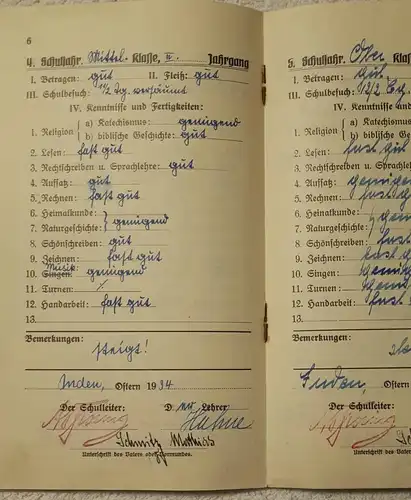 6
4. Schuljahr. Mittel. Klasse, II. Jahrgang
I. Betragen: gut II. Fleiß: gut
III. Schulbesuch: 1½ Tg. versäumt
IV. Kenntnisse und Fertigkeiten:
1. Religion { a) Katechismus: genügend
b) biblische Geschichte: gut
2. Lesen: fast gut
3. Rechtschreiben u. Sprachlehre: gut
4. Aufsatz: gut
5. Rechnen: fast gut
6. Heimatkunde: } genügend
7. Naturgeschichte:
8. Schönschreiben: gut
9. Zeichnen: fast gut
10. Singen: Musik genügend
11. Turnen: /.
12. Handarbeit: fast gut
13.
Bemerkungen:
steigt!
Inden, Ostern 1934
Der Schulleiter: D er Lehrer
Hahne
Schmitz Matthias
Unterschrift des Vaters oder Vormundes.
5. Schuljahr. Ober Kla
I. Betragen: gut
III. Schulbesuch:
IV. Kenntnisse und
1. Religion { a) Katechismus:
b) biblische Gesch
2. Lesen: fast gut
3. Rechtschreiben u. Sprachlehre
4. Aufsatz: genügen
5. Rechnen: fast g
6. Heimatkunde: } gen
7. Naturgeschichte:
8. Schönschreiben: fast
9. Zeichnen:
10. Singen:
11. Turnen:
12. Handarbeit: fast
13.
Bemerkungen:
Inden, Ostern
Der Schulleiter:
Unterschrift des Va